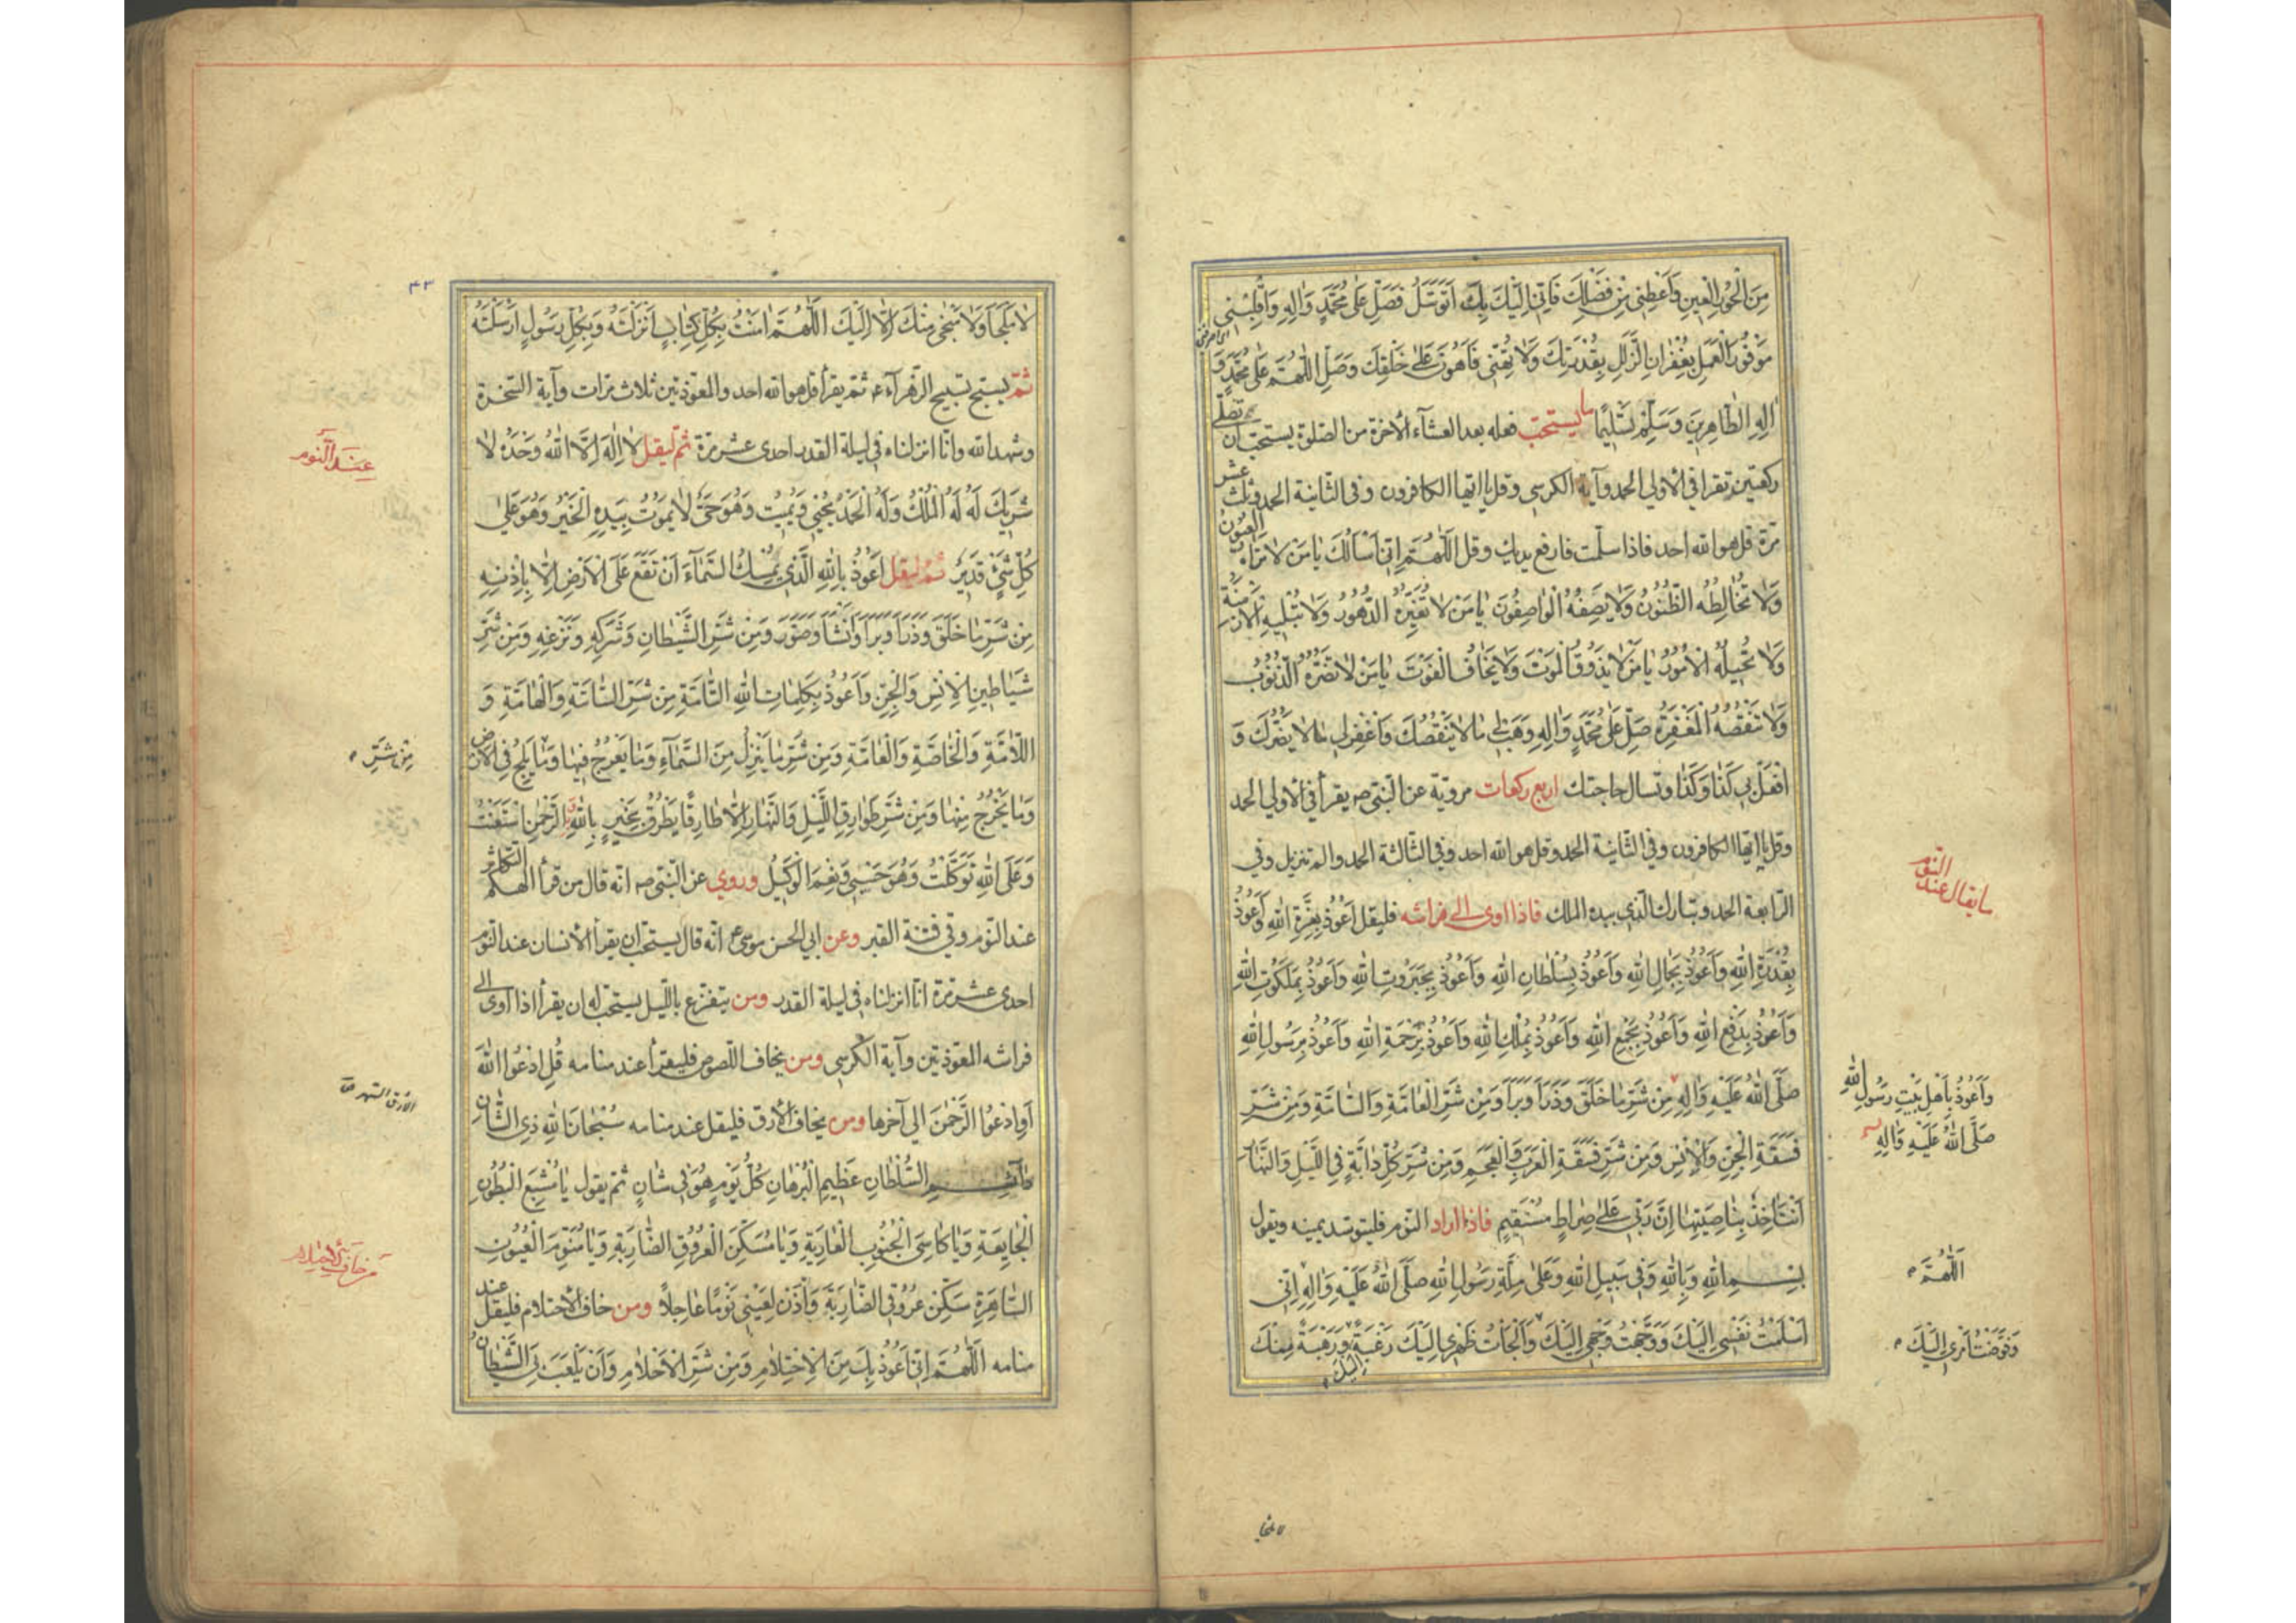 مِنَ الْحُورِ الْعِينِ وَاَعْطِنِي مِنْ فَضْلِكَ فَاِنِّي اِلَيْكَ بِكَ اَتَوَسَّلُ فَصَلِّ عَلٰى مُحَمَّدٍ وَاٰلِهِ وَاقْلِبْنِي
مَوْفُورَ الْعَمَلِ بِغُفْرَانِ الزَّلَلِ بِقُدْرَتِكَ وَلَا تُهِنِّي فَاَهُونَ عَلٰى خَلْقِكَ وَصَلِّ اللّٰهُمَّ عَلٰى مُحَمَّدٍ وَ
اٰلِهِ الطَّاهِرِينَ وَسَلِّمْ تَسْلِيمًا ما يستحبّ فعله بعد العشآء الأخرة من الصلوة يستحبّ ان تصلّي
ركعتين تقرا في الأولى الحمد وآية الكرسي وقل يا ايّها الكافرون وفي الثانية الحمد وثلث عشر
مرّة قل هو الله احد فاذا سلّمت فارفع يديك وقل اَللّٰهُمَّ اِنِّي اَسْاَلُكَ يَا مَنْ لَا تَرَاهُ الْعُيُونُ
وَلَا تُخَالِطُهُ الظُّنُونُ وَلَا يَصِفُهُ الْوَاصِفُونَ يَا مَنْ لَا تُغَيِّرُهُ الدُّهُورُ وَلَا تُبْلِيهِ الْاَزْمِنَةُ
وَلَا تُحِيلُهُ الْاُمُورُ يَا مَنْ لَا يَذُوقُ الْمَوْتَ وَلَا يَخَافُ الْفَوْتَ يَا مَنْ لَا تَضُرُّهُ الذُّنُوبُ
وَلَا تَنْقُصُهُ الْمَغْفِرَةُ صَلِّ عَلٰى مُحَمَّدٍ وَاٰلِهِ وَهَبْ لِي مَا لَا يَنْقُصُكَ وَاغْفِرْ لِي مَا لَا يَضُرُّكَ وَ
افْعَلْ بِي كَذَا وَكَذَا وتسال حاجتك اربع ركعات مرويّة عن النّبيّ ص يقرأ في الأولى الحمد
وقل يا ايّها الكافرون وفي الثانية الحمد وقل هو الله احد وفي الثالثة الحمد والم تنزيل وفي
الرّابعة الحمد وتبارك الّذي بيده الملك فاذا اوى الى فراشه فليقل اَعُوذُ بِعِزَّةِ اللهِ وَاَعُوذُ
بِقُدْرَةِ اللهِ وَاَعُوذُ بِجَمَالِ اللهِ وَاَعُوذُ بِسُلْطَانِ اللهِ وَاَعُوذُ بِجَبَرُوتِ اللهِ وَاَعُوذُ بِمَلَكُوتِ اللهِ
وَاَعُوذُ بِدَفْعِ اللهِ وَاَعُوذُ بِجَمْعِ اللهِ وَاَعُوذُ بِمُلْكِ اللهِ وَاَعُوذُ بِرَحْمَةِ اللهِ وَاَعُوذُ بِرَسُولِ اللهِ
صَلَّى اللهُ عَلَيْهِ وَاٰلِهِ مِنْ شَرِّ مَا خَلَقَ وَذَرَاَ وَبَرَاَ وَمِنْ شَرِّ الْعَامَّةِ وَالسَّامَّةِ وَمِنْ شَرِّ
فَسَقَةِ الْجِنِّ وَالْاِنْسِ وَمِنْ شَرِّ فَسَقَةِ الْعَرَبِ وَالْعَجَمِ وَمِنْ شَرِّ كُلِّ دَابَّةٍ فِي اللَّيْلِ وَالنَّهَارِ
اَنْتَ اٰخِذٌ بِنَاصِيَتِهَا اِنَّ رَبِّي عَلٰى صِرَاطٍ مُسْتَقِيمٍ فاذا اراد النّوم فليتوسّد يمينه ويقول
بِسْمِ اللهِ وَبِاللهِ وَفِي سَبِيلِ اللهِ وَعَلٰى مِلَّةِ رَسُولِ اللهِ صَلَّى اللهُ عَلَيْهِ وَاٰلِهِ اِنِّي
اَسْلَمْتُ نَفْسِي اِلَيْكَ وَوَجَّهْتُ وَجْهِي اِلَيْكَ وَاَلْجَاْتُ ظَهْرِي اِلَيْكَ رَغْبَةً وَرَهْبَةً مِنْكَ اِلَيْكَ
ما يقال عند النّوم
وَاَعُوذُ بِاَهْلِ بَيْتِ رَسُولِ اللهِ
صَلَّى اللهُ عَلَيْهِ وَاٰلِهِ
اَللّٰهُمَّ
وَفَوَّضْتُ اَمْرِي اِلَيْكَ
لا ملجا
٤٣
لَا مَلْجَاَ وَلَا مَنْجٰى مِنْكَ اِلَّا اِلَيْكَ اَللّٰهُمَّ اٰمَنْتُ بِكُلِّ كِتَابٍ اَنْزَلْتَهُ وَبِكُلِّ رَسُولٍ اَرْسَلْتَهُ
ثمّ يسبّح تسبيح الزّهرآء ع ثمّ يقرأ قل هو الله احد والمعوّذتين ثلاث مرّات وآية السّخرة
وشهد الله وانّا انزلناه في ليلة القدر احدى عشر مرّة ثمّ ليقل لَا اِلٰهَ اِلَّا اللهُ وَحْدَهُ لَا
شَرِيكَ لَهُ لَهُ الْمُلْكُ وَلَهُ الْحَمْدُ يُحْيِي وَيُمِيتُ وَهُوَ حَيٌّ لَا يَمُوتُ بِيَدِهِ الْخَيْرُ وَهُوَ عَلٰى
كُلِّ شَيْءٍ قَدِيرٌ ثمّ ليقل اَعُوذُ بِاللهِ الَّذِي يُمْسِكُ السَّمَآءَ اَنْ تَقَعَ عَلَى الْاَرْضِ اِلَّا بِاِذْنِهِ
مِنْ شَرِّ مَا خَلَقَ وَذَرَاَ وَبَرَاَ وَاَنْشَاَ وَصَوَّرَ وَمِنْ شَرِّ الشَّيْطَانِ وَشَرَكِهِ وَنَزْغِهِ وَمِنْ شَرِّ
شَيَاطِينِ الْاِنْسِ وَالْجِنِّ وَاَعُوذُ بِكَلِمَاتِ اللهِ التَّامَّةِ مِنْ شَرِّ السَّامَّةِ وَالْهَامَّةِ وَ
اللَّامَّةِ وَالْخَاصَّةِ وَالْعَامَّةِ وَمِنْ شَرِّ مَا يَنْزِلُ مِنَ السَّمَآءِ وَمَا يَعْرُجُ فِيهَا وَمَا يَلِجُ فِي الْاَرْضِ
وَمَا يَخْرُجُ مِنْهَا وَمِنْ شَرِّ طَوَارِقِ اللَّيْلِ وَالنَّهَارِ اِلَّا طَارِقًا يَطْرُقُ بِخَيْرٍ بِاللهِ الرَّحْمٰنِ اسْتَعَنْتُ
وَعَلَى اللهِ تَوَكَّلْتُ وَهُوَ حَسْبِي وَنِعْمَ الْوَكِيلُ وروي عن النّبيّ ص انّه قال من قرأ الهٰكم التكاثر
عند النّوم وقي فتنة القبر وعن ابي الحسن موسى ع انّه قال يستحبّ ان يقرأ الأنسان عند النّوم
احدى عشر مرّة انّا انزلناه في ليلة القدر ومن يتفزّع باللّيل يستحبّ له ان يقرأ اذا اوى الى
فراشه المعوّذتين وآية الكرسي ومن يخاف اللّصوص فليقرأ عند منامه قُلِ ادْعُوا اللهَ
اَوِ ادْعُوا الرَّحْمٰنَ الى آخرها ومن يخاف الأرق فليقل عند منامه سُبْحَانَ اللهِ ذِي الشَّانِ
دَآئِمِ السُّلْطَانِ عَظِيمِ الْبُرْهَانِ كُلَّ يَوْمٍ هُوَ فِي شَانٍ ثمّ يقول يَا مُشْبِعَ الْبُطُونِ
الْجَايِعَةِ وَيَا كَاسِيَ الْجُنُوبِ الْعَارِيَةِ وَيَا مُسَكِّنَ الْعُرُوقِ الضَّارِبَةِ وَيَا مُنَوِّمَ الْعُيُونِ
السَّاهِرَةِ سَكِّنْ عُرُوقِي الضَّارِبَةَ وَاْذَنْ لِعَيْنِي نَوْمًا عَاجِلًا ومن خاف الأحتلام فليقل عند
منامه اَللّٰهُمَّ اِنِّي اَعُوذُ بِكَ مِنَ الْاِحْتِلَامِ وَمِنْ شَرِّ الْاَحْلَامِ وَاَنْ يَلْعَبَ بِيَ الشَّيْطَانُ
عند النّوم
مِنْ شَرِّ
الأرق السّهر
من خاف الأحتلام